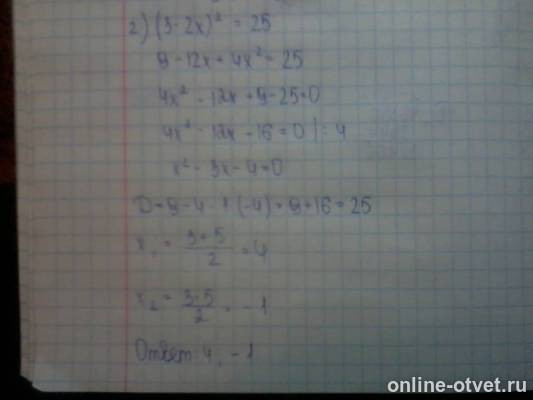 2) (3-2x)² = 25
9-12x+4x² = 25
4x² - 12x + 9 - 25 = 0
4x² - 12x - 16 = 0 | : 4
x² - 3x - 4 = 0
D = 9 - 4 · 1 · (-4) = 9 + 16 = 25
x₁ = (3+5)/2 = 4
x₂ = (3-5)/2 = -1
Ответ: 4, -1
online-otvet.ru